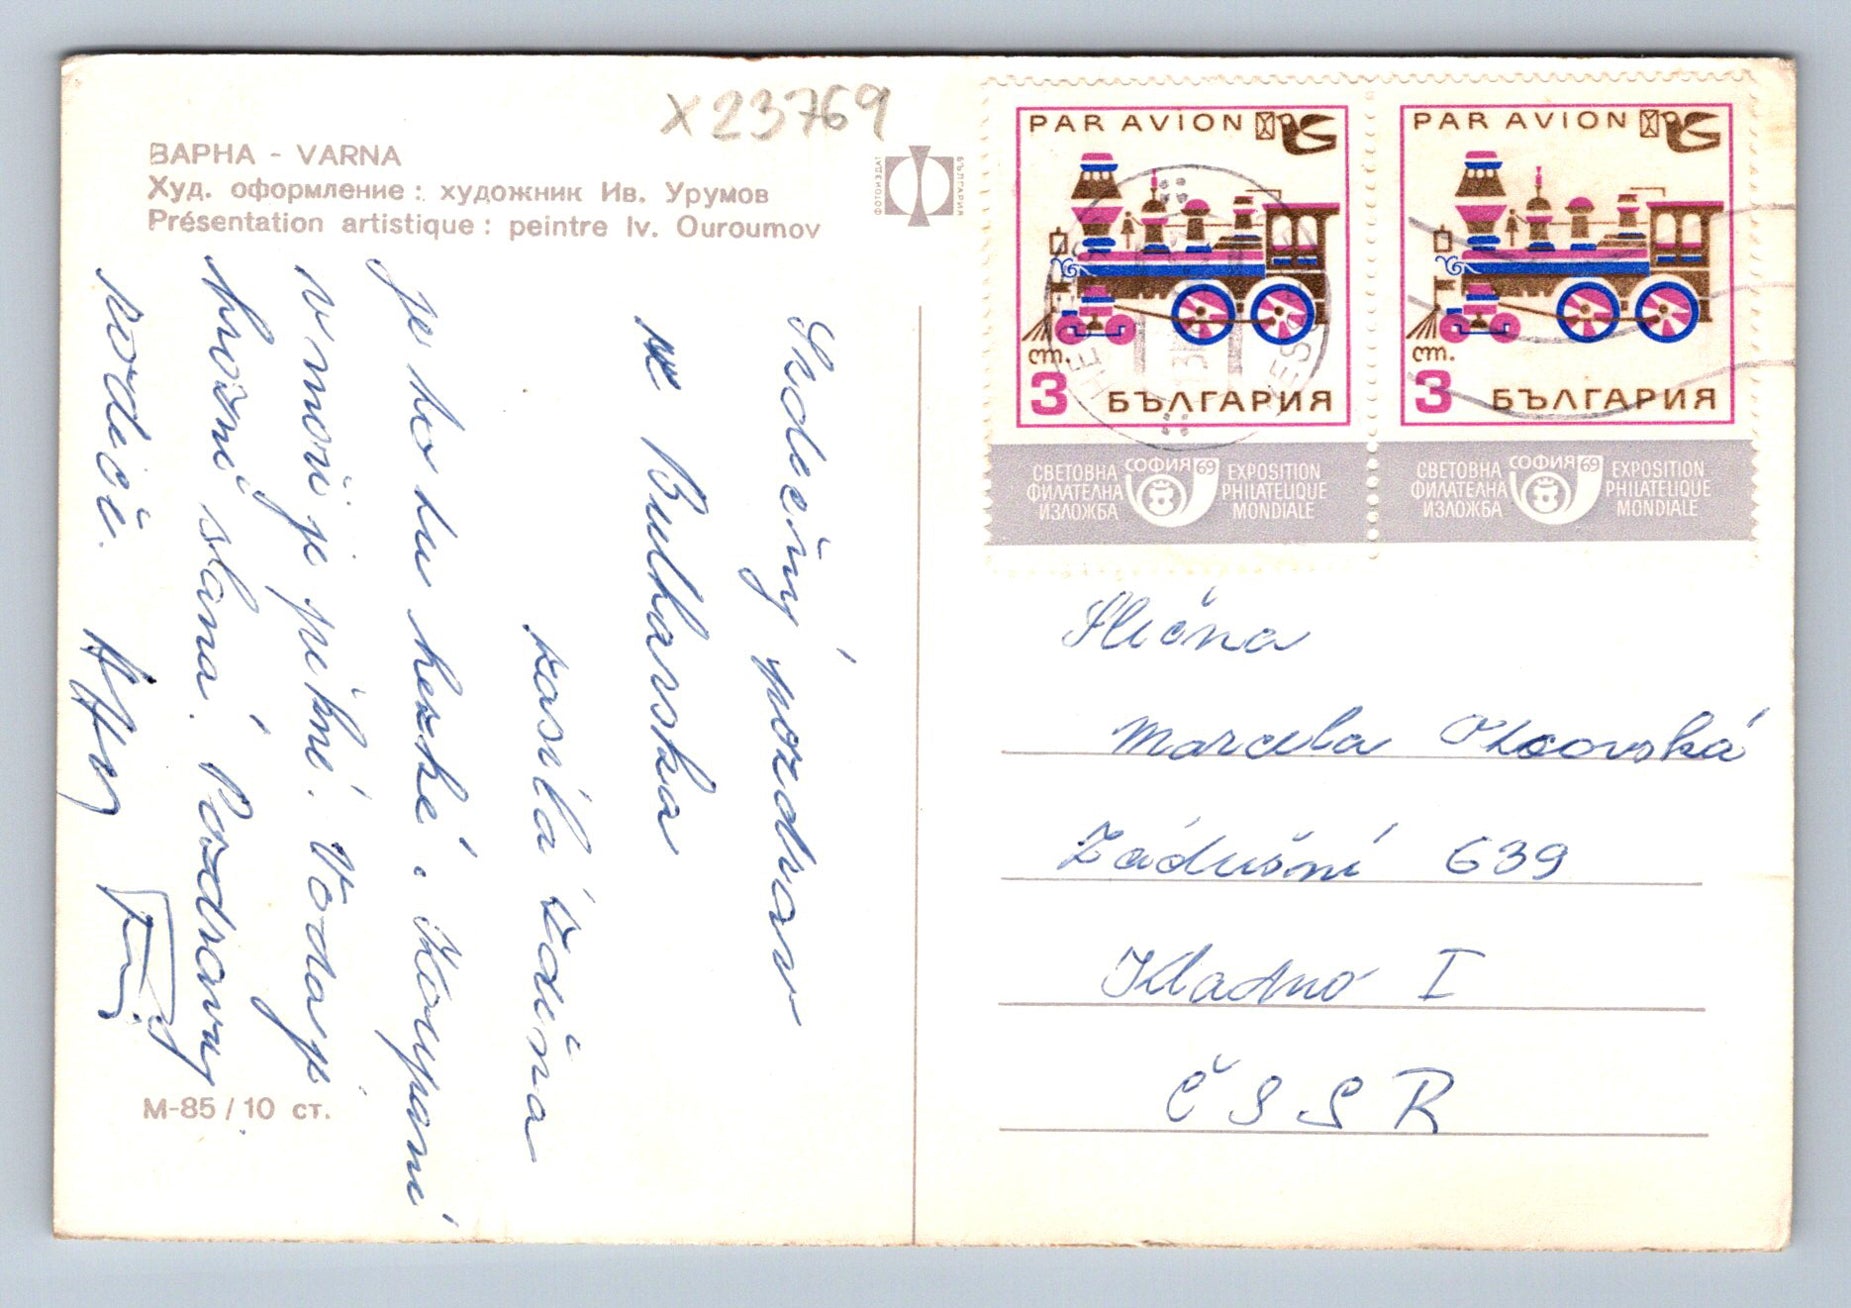 X23769
ВАРНА - VARNA
Худ. оформление: художник Ив. Урумов
Présentation artistique: peintre Iv. Ouroumov
ФОТОИЗДАТ
БЪЛГАРИЯ
Srdečný pozdrav
z Bulharska
zasílá Zdena
je to tu hezké. Koupání
v moři je pěkné. Voda je
hrozně slaná. Pozdravuj
rodiče.
М-85 / 10 ст.
PAR AVION
ст.
3
БЪЛГАРИЯ
СВЕТОВНА
ФИЛАТЕЛНА
ИЗЛОЖБА
СОФИЯ 69
EXPOSITION
PHILATELIQUE
MONDIALE
PAR AVION
ст.
3
БЪЛГАРИЯ
СВЕТОВНА
ФИЛАТЕЛНА
ИЗЛОЖБА
СОФИЯ 69
EXPOSITION
PHILATELIQUE
MONDIALE
Slečna
Marcela
Zádušní 639
Kladno I
ČSSR